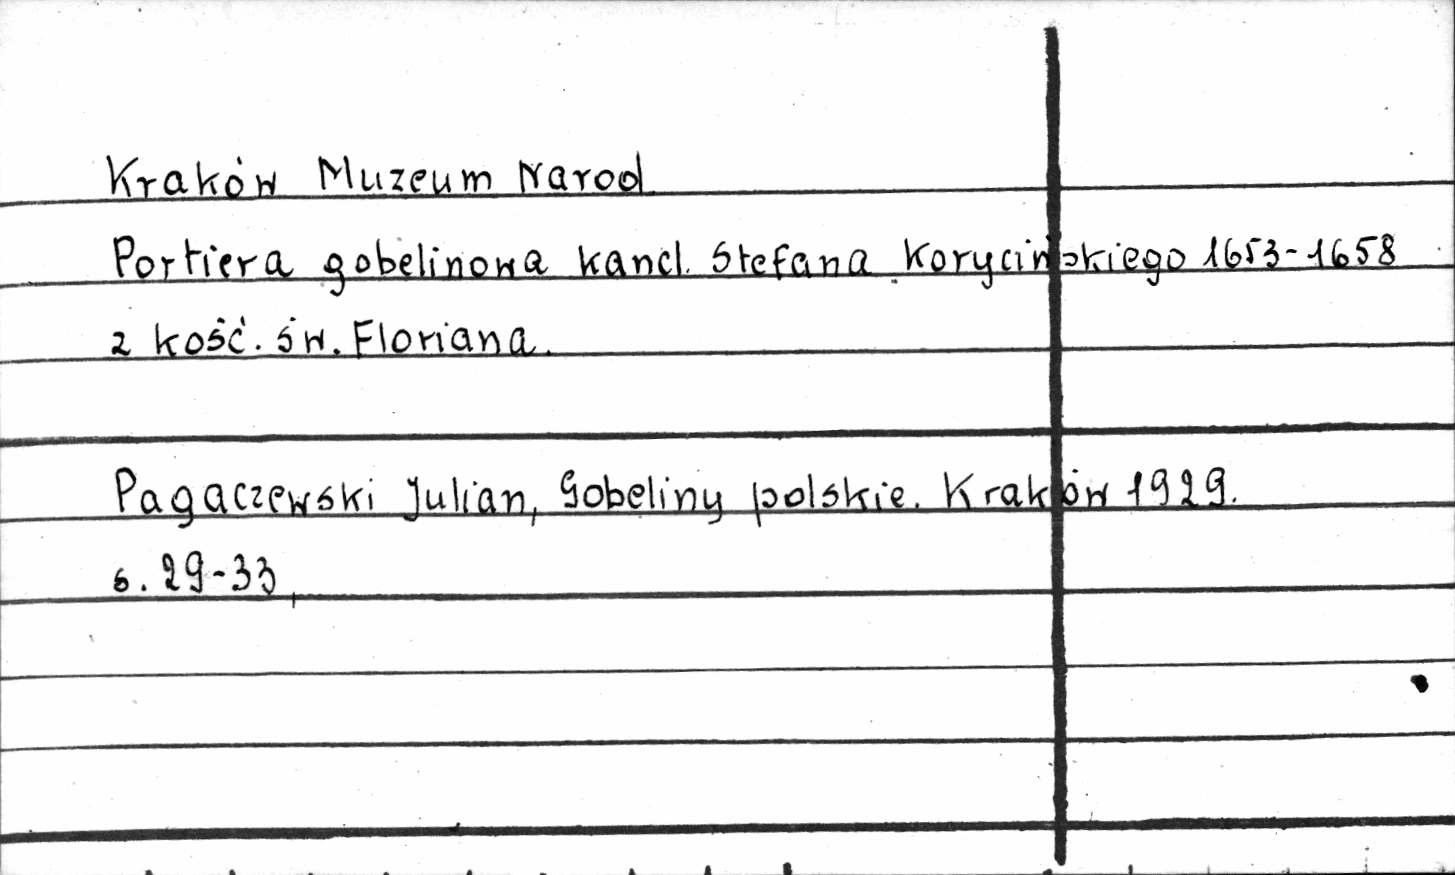 Kraków Muzeum Narod.
Portiera gobelinowa kancl. Stefana Korycińskiego 1653-1658
z kość. św. Floriana.
Pagaczewski Julian, Gobeliny polskie. Kraków 1929.
s. 29-33,